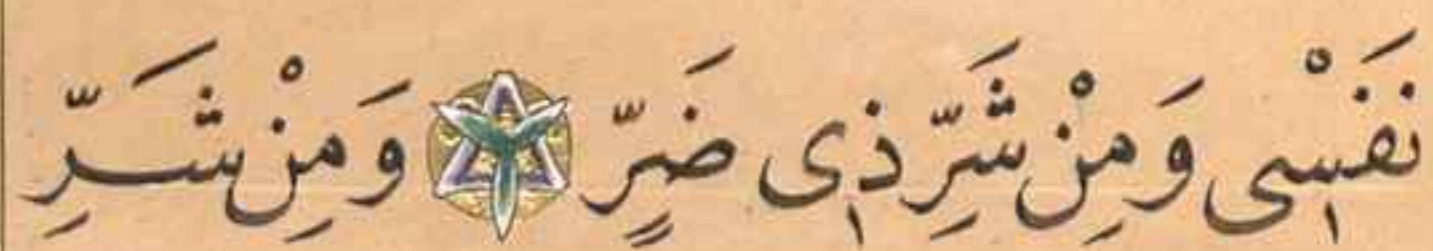 نَفْسٖى وَمِنْ شَرِّ ذٖى ضَرٍّ وَمِنْ شَرِّ